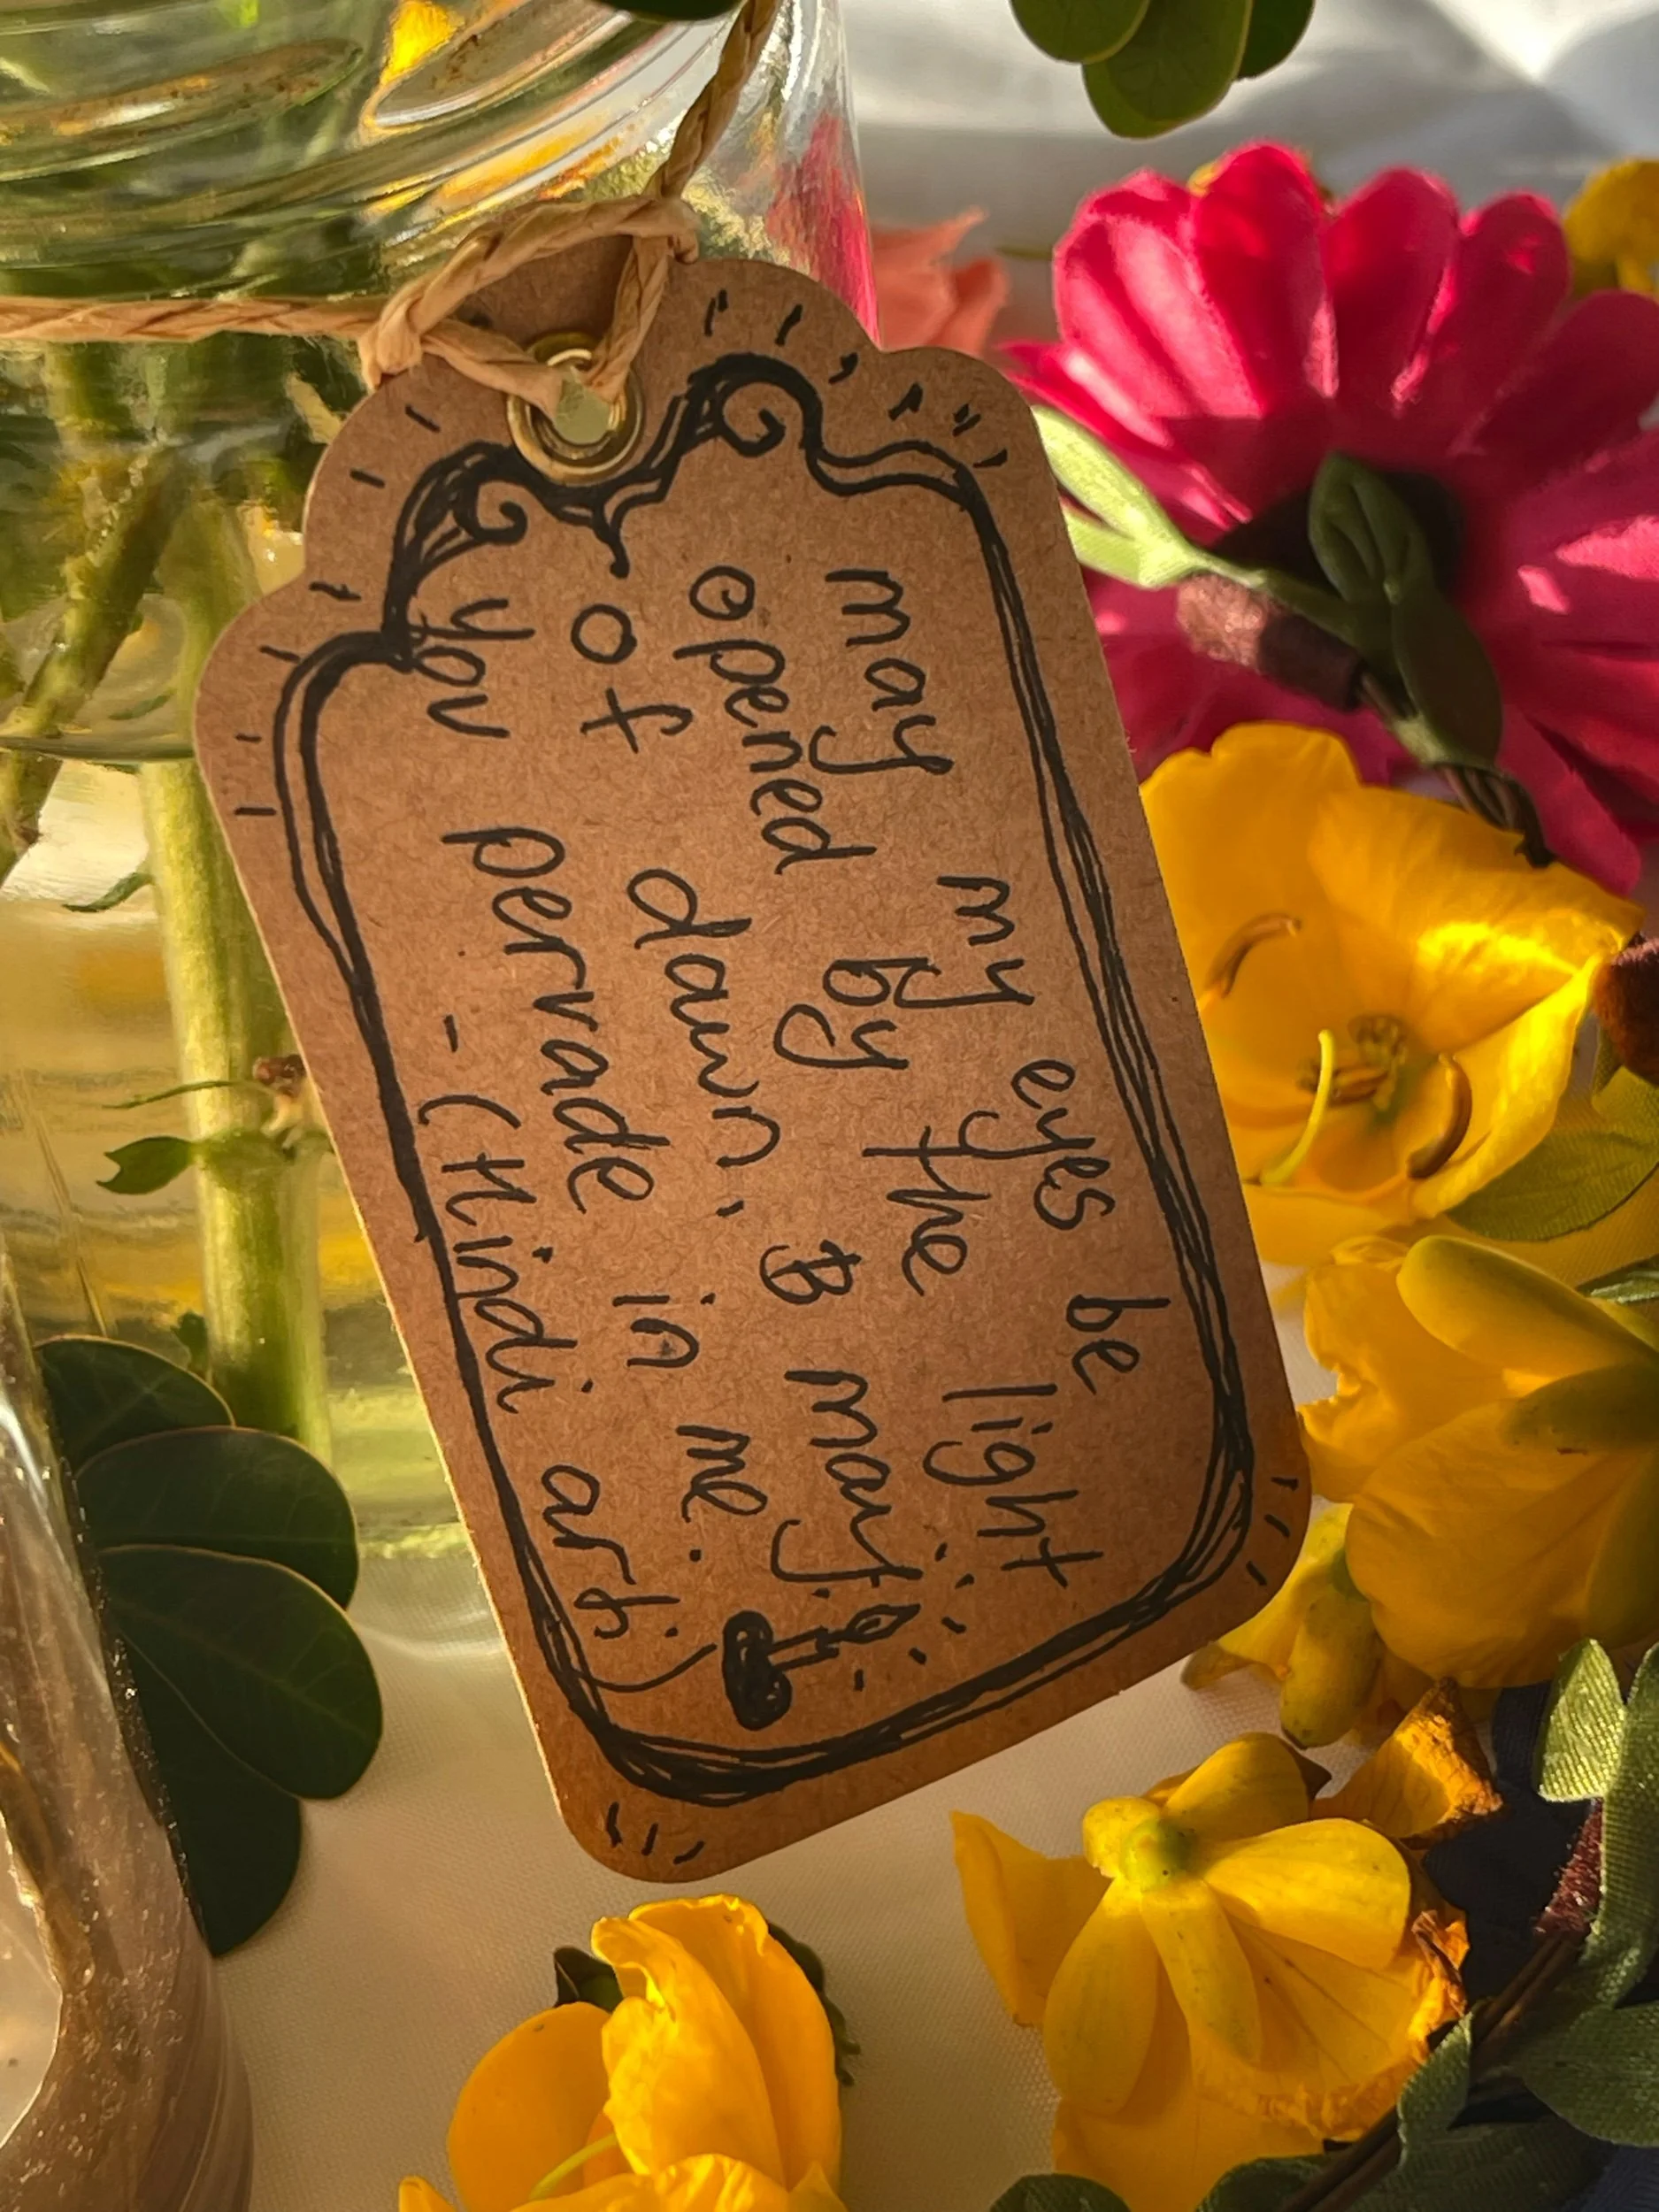 may my eyes be
opened by the light
of dawn, & may
you pervade in me.
- (Hindi arti)